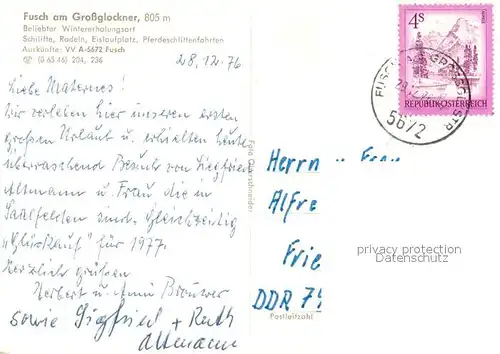 Fusch am Großglockner, 805 m
Beliebter Wintererholungsort
Schilifte, Rodeln, Eislaufplatz, Pferdeschlittenfahrten
Auskünfte: VV A-5672 Fusch
(0 65 46) 204, 236
28.12.76
Liebe Maternes!
Wir verleben hier unseren ersten
großen Urlaub u. erhielten heute
überraschend Besuch von Siegfried
Altmann u. Frau die in
Saalfelden sind. Gleichzeitig
"Glückauf" für 1977.
Herzlich grüßen
Herbert u. Anni Brouwer
sowie Siegfried + Ruth
Altmann
4s
REPUBLIK ÖSTERREICH
5672
Herrn u. Frau
Alfre
Frie
DDR
Postleitzahl
privacy protection
Datenschutz